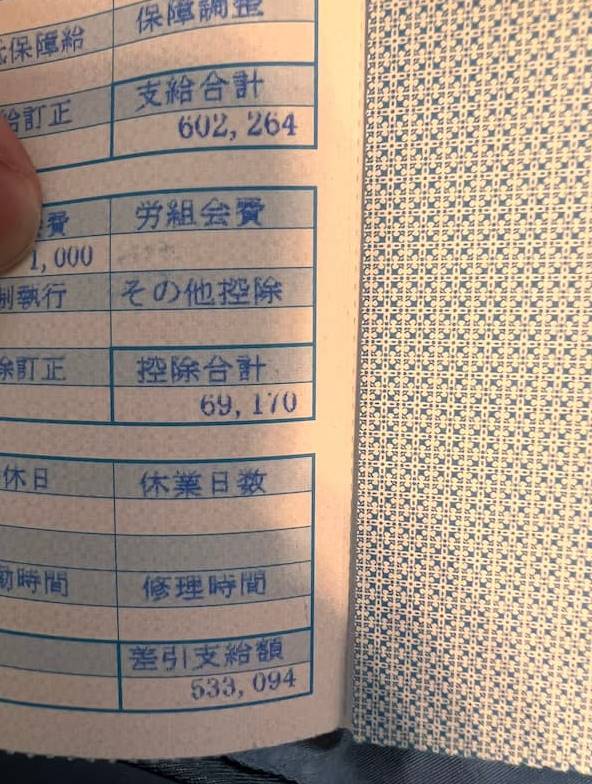 保障調整
保障給
支給合計
給訂正
602,264
費 労組会費
1,000
執行 その他控除
除訂正 控除合計
69,170
休日 休業日数
時間 修理時間
差引支給額
533,094